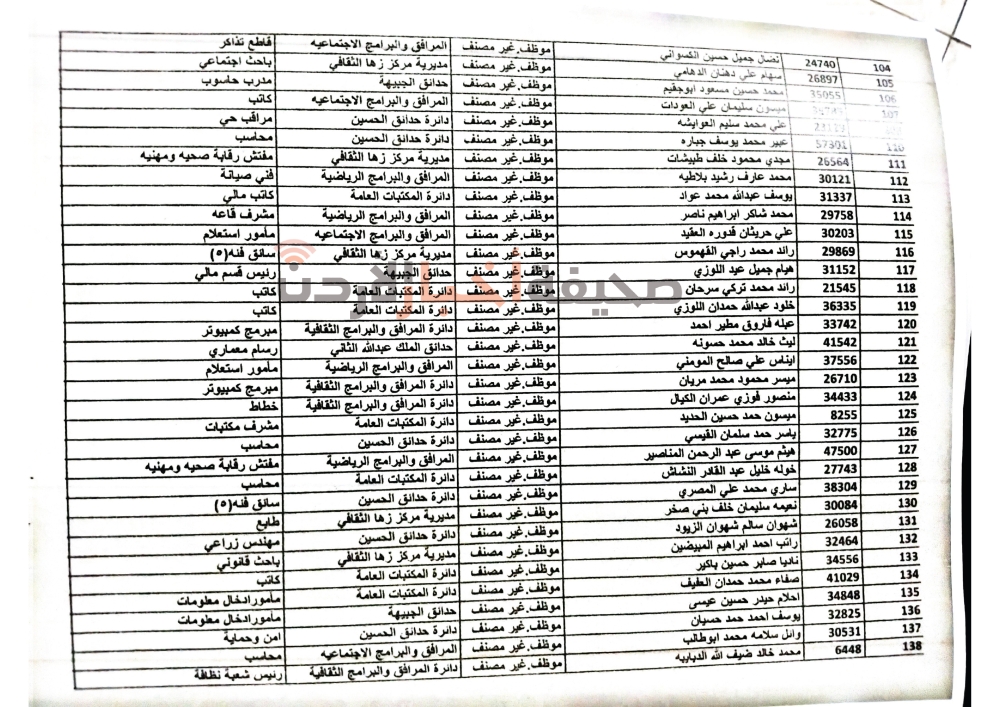 104 24740 نضال جميل حسين الكسواني موظف.غير مصنف المرافق والبرامج الاجتماعيه قاطع تذاكر
105 26897 سهام علي دهنان الدهامي موظف.غير مصنف مديرية مركز زها الثقافي باحث اجتماعي
106 35055 محمد حسين مسعود ابوجقيم موظف.غير مصنف حدائق الجبيهة مدرب حاسوب
107 ميسون سليمان علي العودات موظف.غير مصنف المرافق والبرامج الاجتماعيه كاتب
علي محمد سليم العوايشه موظف.غير مصنف دائرة حدائق الحسين مراقب حي
110 57301 عبير محمد يوسف جباره موظف.غير مصنف دائرة حدائق الحسين محاسب
111 26564 مجدي محمود خلف طبيشات موظف.غير مصنف مديرية مركز زها الثقافي مفتش رقابة صحيه ومهنيه
112 30121 محمد عارف رشيد بلاطيه موظف.غير مصنف المرافق والبرامج الرياضية فني صيانة
113 31337 يوسف عبدالله محمد عواد موظف.غير مصنف دائرة المكتبات العامة كاتب مالي
114 29758 محمد شاكر ابراهيم ناصر موظف.غير مصنف المرافق والبرامج الرياضية مشرف قاعه
115 30203 علي حريثان قدوره العقيد موظف.غير مصنف المرافق والبرامج الاجتماعيه مأمور استعلام
116 29869 رائد محمد راجي القهموس موظف.غير مصنف مديرية مركز زها الثقافي سائق فئه(٥)
117 31152 هيام جميل عيد اللوزي موظف.غير مصنف حدائق الجبيهة رئيس قسم مالي
118 21545 رائد محمد تركي سرحان موظف.غير مصنف دائرة المكتبات العامة كاتب
119 36335 خلود عبدالله حمدان اللوزي موظف.غير مصنف دائرة المكتبات العامة كاتب
120 33742 عبله فاروق مطير احمد موظف.غير مصنف دائرة المرافق والبرامج الثقافية مبرمج كمبيوتر
121 41542 ليث خالد محمد حسونه موظف.غير مصنف حدائق الملك عبدالله الثاني رسام معماري
122 37556 ايناس علي صالح المومني موظف.غير مصنف المرافق والبرامج الرياضية مأمور استعلام
123 26710 ميسر محمود محمد مريان موظف.غير مصنف دائرة المرافق والبرامج الثقافية مبرمج كمبيوتر
124 34433 منصور فوزي عمران الكيال موظف.غير مصنف دائرة المرافق والبرامج الثقافية خطاط
125 8255 ميسون حمد حسين الحديد موظف.غير مصنف دائرة المكتبات العامة مشرف مكتبات
126 32775 ياسر حمد سلمان القيسي موظف.غير مصنف دائرة حدائق الحسين محاسب
127 47500 هيثم موسى عبد الرحمن المناصير موظف.غير مصنف المرافق والبرامج الرياضية مفتش رقابة صحيه ومهنيه
128 27743 خوله خليل عبد القادر النشاش موظف.غير مصنف دائرة المكتبات العامة محاسب
129 38304 ساري محمد علي المصري موظف.غير مصنف دائرة حدائق الحسين سائق فئه(٥)
130 30084 نعيمه سليمان خلف بني صخر موظف.غير مصنف مديرية مركز زها الثقافي طابع
131 26058 شهوان سالم شهوان الزيود موظف.غير مصنف دائرة حدائق الحسين مهندس زراعي
132 32464 راتب احمد ابراهيم المبيضين موظف.غير مصنف مديرية مركز زها الثقافي باحث قانوني
133 34556 ناديا صابر حسين باكير موظف.غير مصنف دائرة المكتبات العامة كاتب
134 41029 صفاء محمد حمدان العفيف موظف.غير مصنف دائرة المكتبات العامة مأمور ادخال معلومات
135 34848 احلام حيدر حسين عيسى موظف.غير مصنف حدائق الجبيهة مأمور ادخال معلومات
136 32825 يوسف احمد حمد حسيان موظف.غير مصنف دائرة حدائق الحسين امن وحماية
137 30531 وائل سلامه محمد ابوطالب موظف.غير مصنف المرافق والبرامج الاجتماعيه محاسب
138 6448 محمد خالد ضيف الله الدبايبه موظف.غير مصنف دائرة المرافق والبرامج الثقافية رئيس شعبة نظافة
صحيفة اخبار الاردن